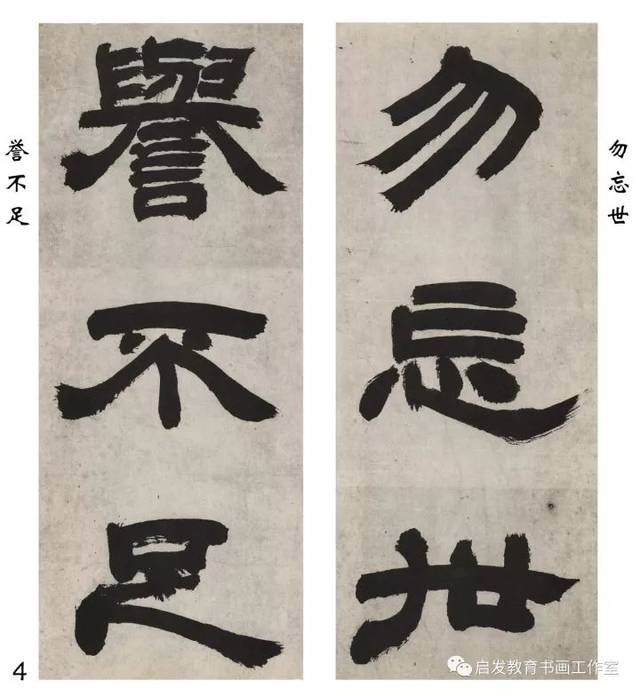 勿忘世
勿忘世
譽不足
誉不足
4
启发教育书画工作室